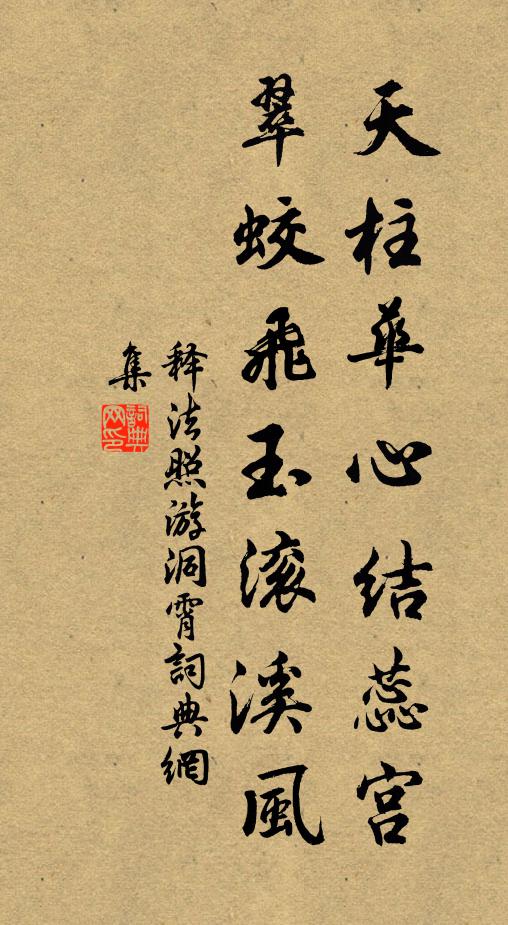 天柱華心結蕊宫
翠蛟飛玉滚溪風
释法照游洞霄詞典網
集
詞典
网印